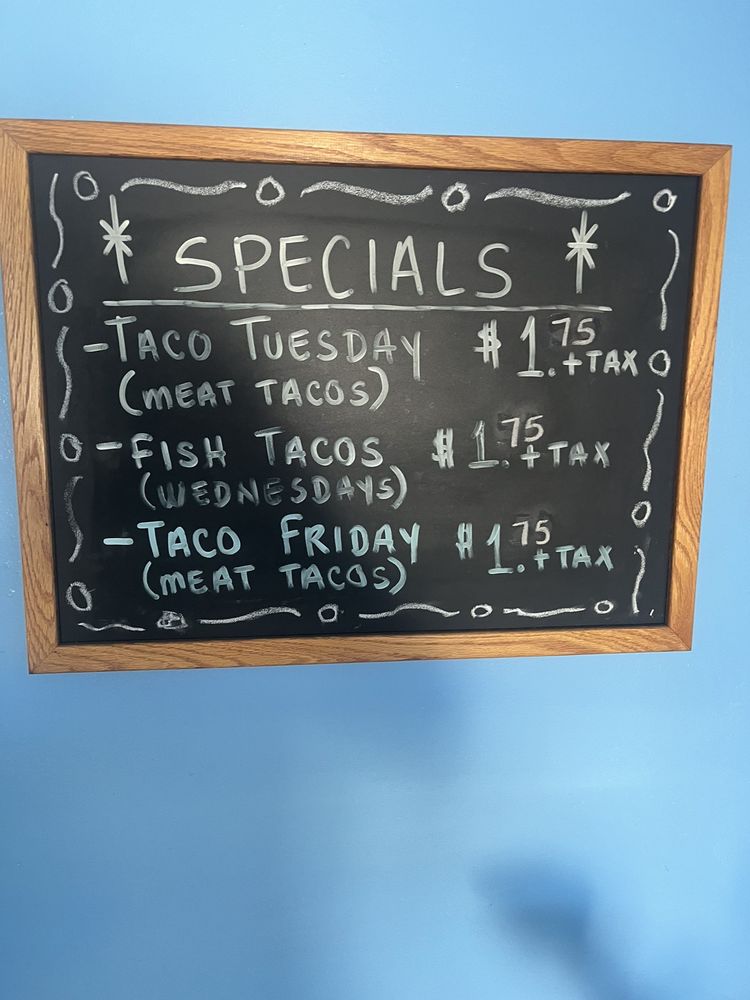 * SPECIALS *
-TACO TUESDAY $1.75 + TAX
(MEAT TACOS)
-FISH TACOS $1.75 + TAX
(WEDNESDAYS)
-TACO FRIDAY $1.75 + TAX
(MEAT TACOS)